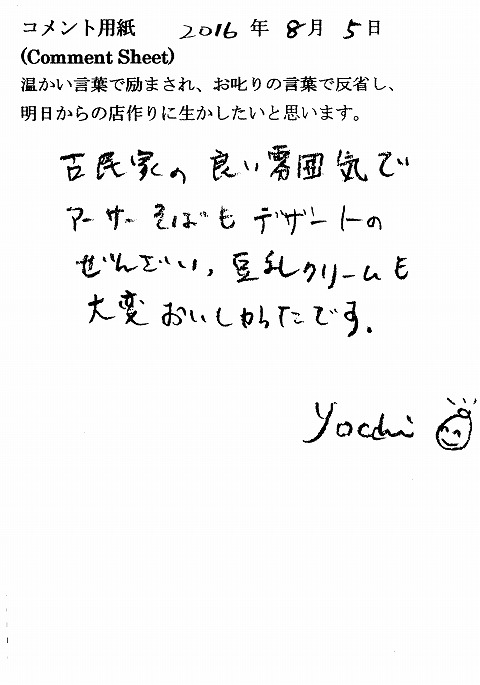 コメント用紙 2016年 8月 5日
(Comment Sheet)
温かい言葉で励まされ、お叱りの言葉で反省し、
明日からの店作りに生かしたいと思います。
古民家の良い雰囲気で
アーサーそばもデザートの
ぜんざい,豆乳クリームも
大変おいしかったです.
Yocchi